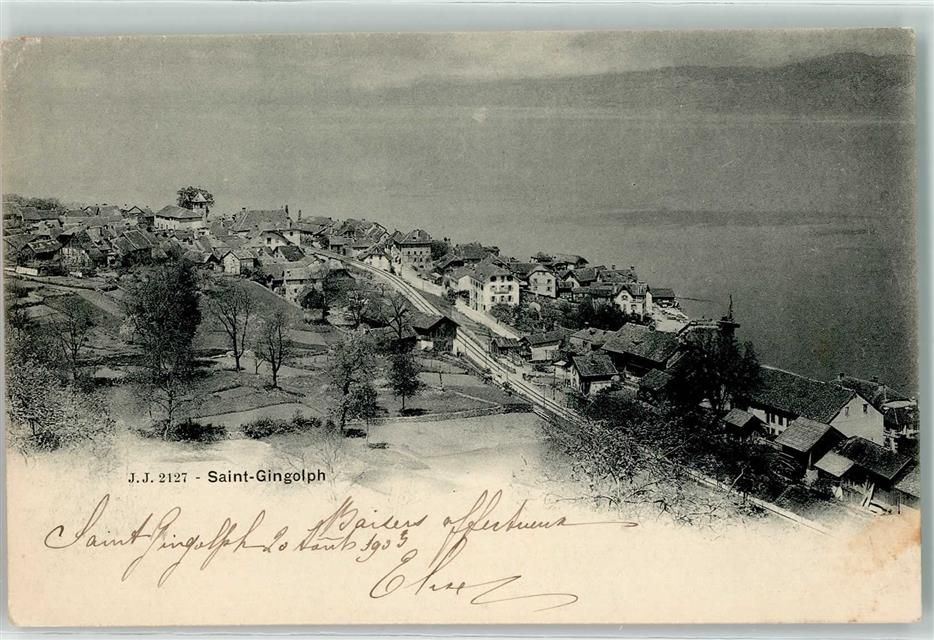 J.J. 2127 - Saint-Gingolph
Saint Gingolph 20 Août 1903 Baisers affectueux
Elise